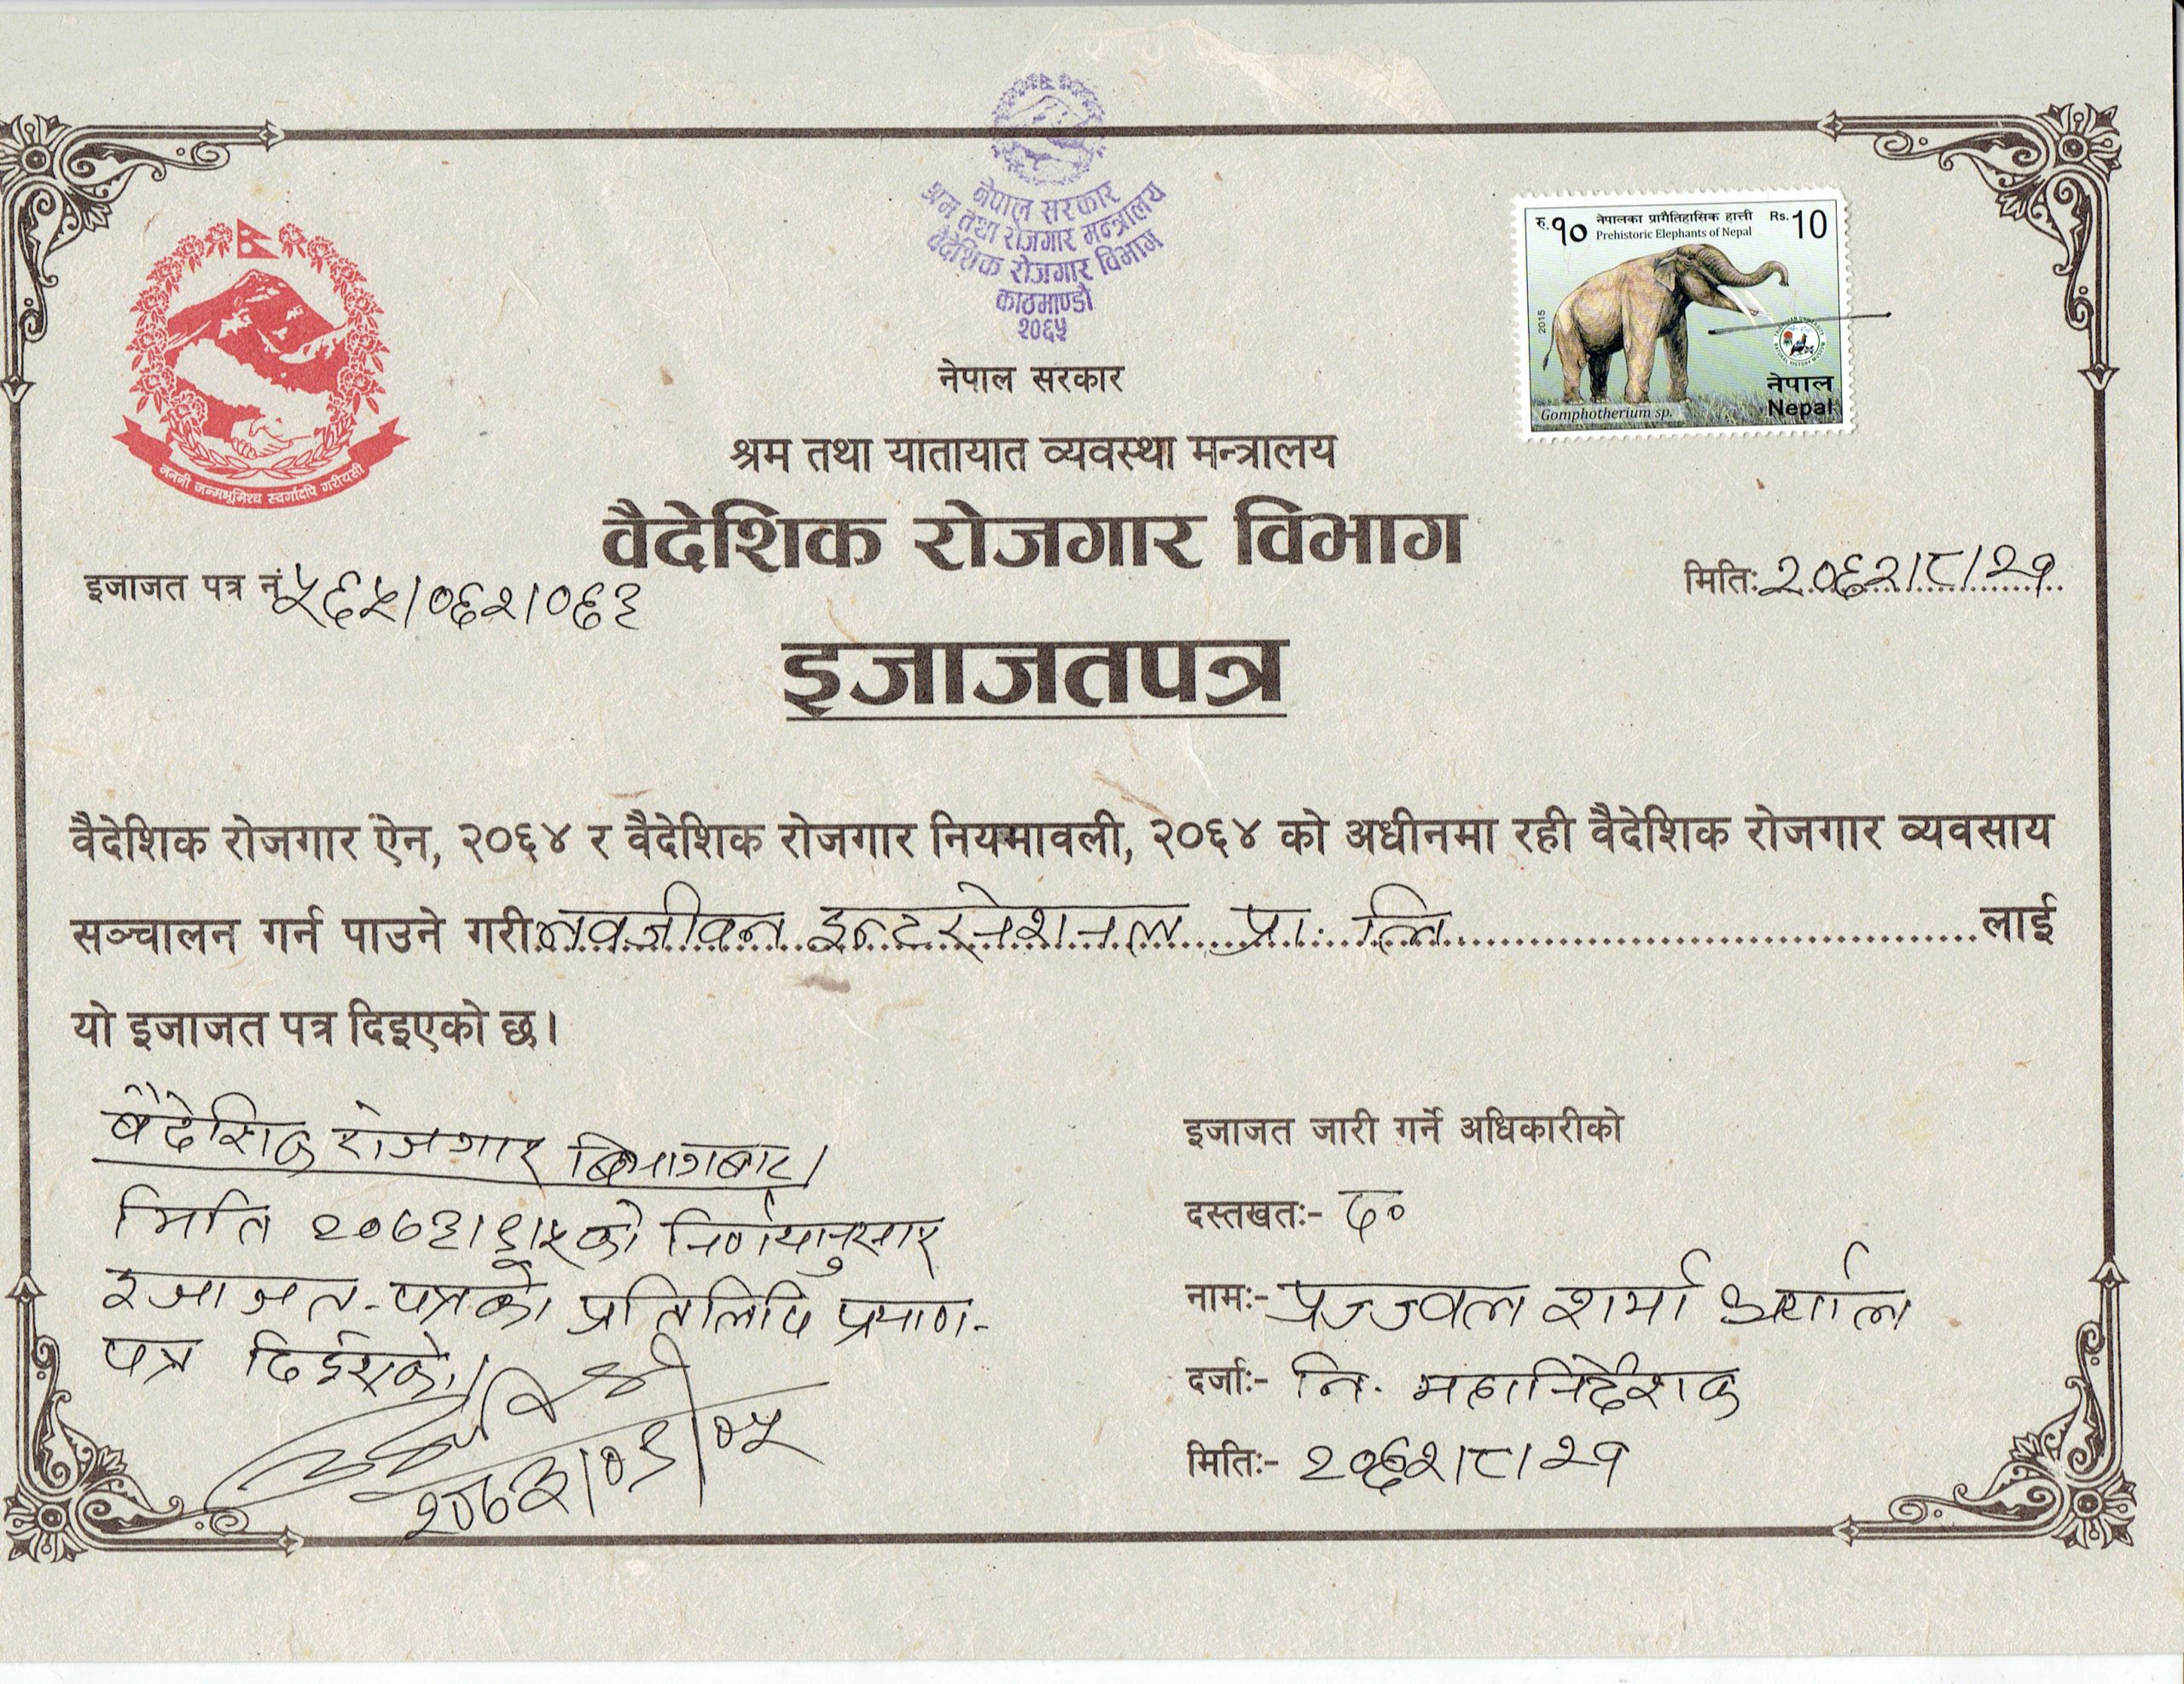 नेपाल सरकार
श्रम तथा रोजगार मन्त्रालय
वैदेशिक रोजगार विभाग
काठमाण्डौ
२०६५
रु.१० नेपालका प्रागैतिहासिक हात्ती Rs. 10
Prehistoric Elephants of Nepal
2015
Gomphotherium sp.
नेपाल
Nepal
जननी जन्मभूमिश्च स्वर्गादपि गरीयसी
नेपाल सरकार
श्रम तथा यातायात व्यवस्था मन्त्रालय
वैदेशिक रोजगार विभाग
इजाजत पत्र नं ५६५/०६२/०६३
मितिः २०६२/८/२१
इजाजतपत्र
वैदेशिक रोजगार ऐन, २०६४ र वैदेशिक रोजगार नियमावली, २०६४ को अधीनमा रही वैदेशिक रोजगार व्यवसाय
सञ्चालन गर्न पाउने गरी नवजीवन इन्टरनेशनल प्रा. लि लाई
यो इजाजत पत्र दिइएको छ।
बैदेसिक रोजगार बिभागबाट
मिति २०७३/९/५ को निर्णयानुसार
इजाजत-पत्रको प्रतिलिपि प्रमाण-
पत्र दिईएको।
२०७३/०९/०५
इजाजत जारी गर्ने अधिकारीको
दस्तखतः- द०
नामः- प्रज्ज्वल शर्मा अर्याल
दर्जाः- नि. महानिर्देशक
मितिः- २०६२/८/२१